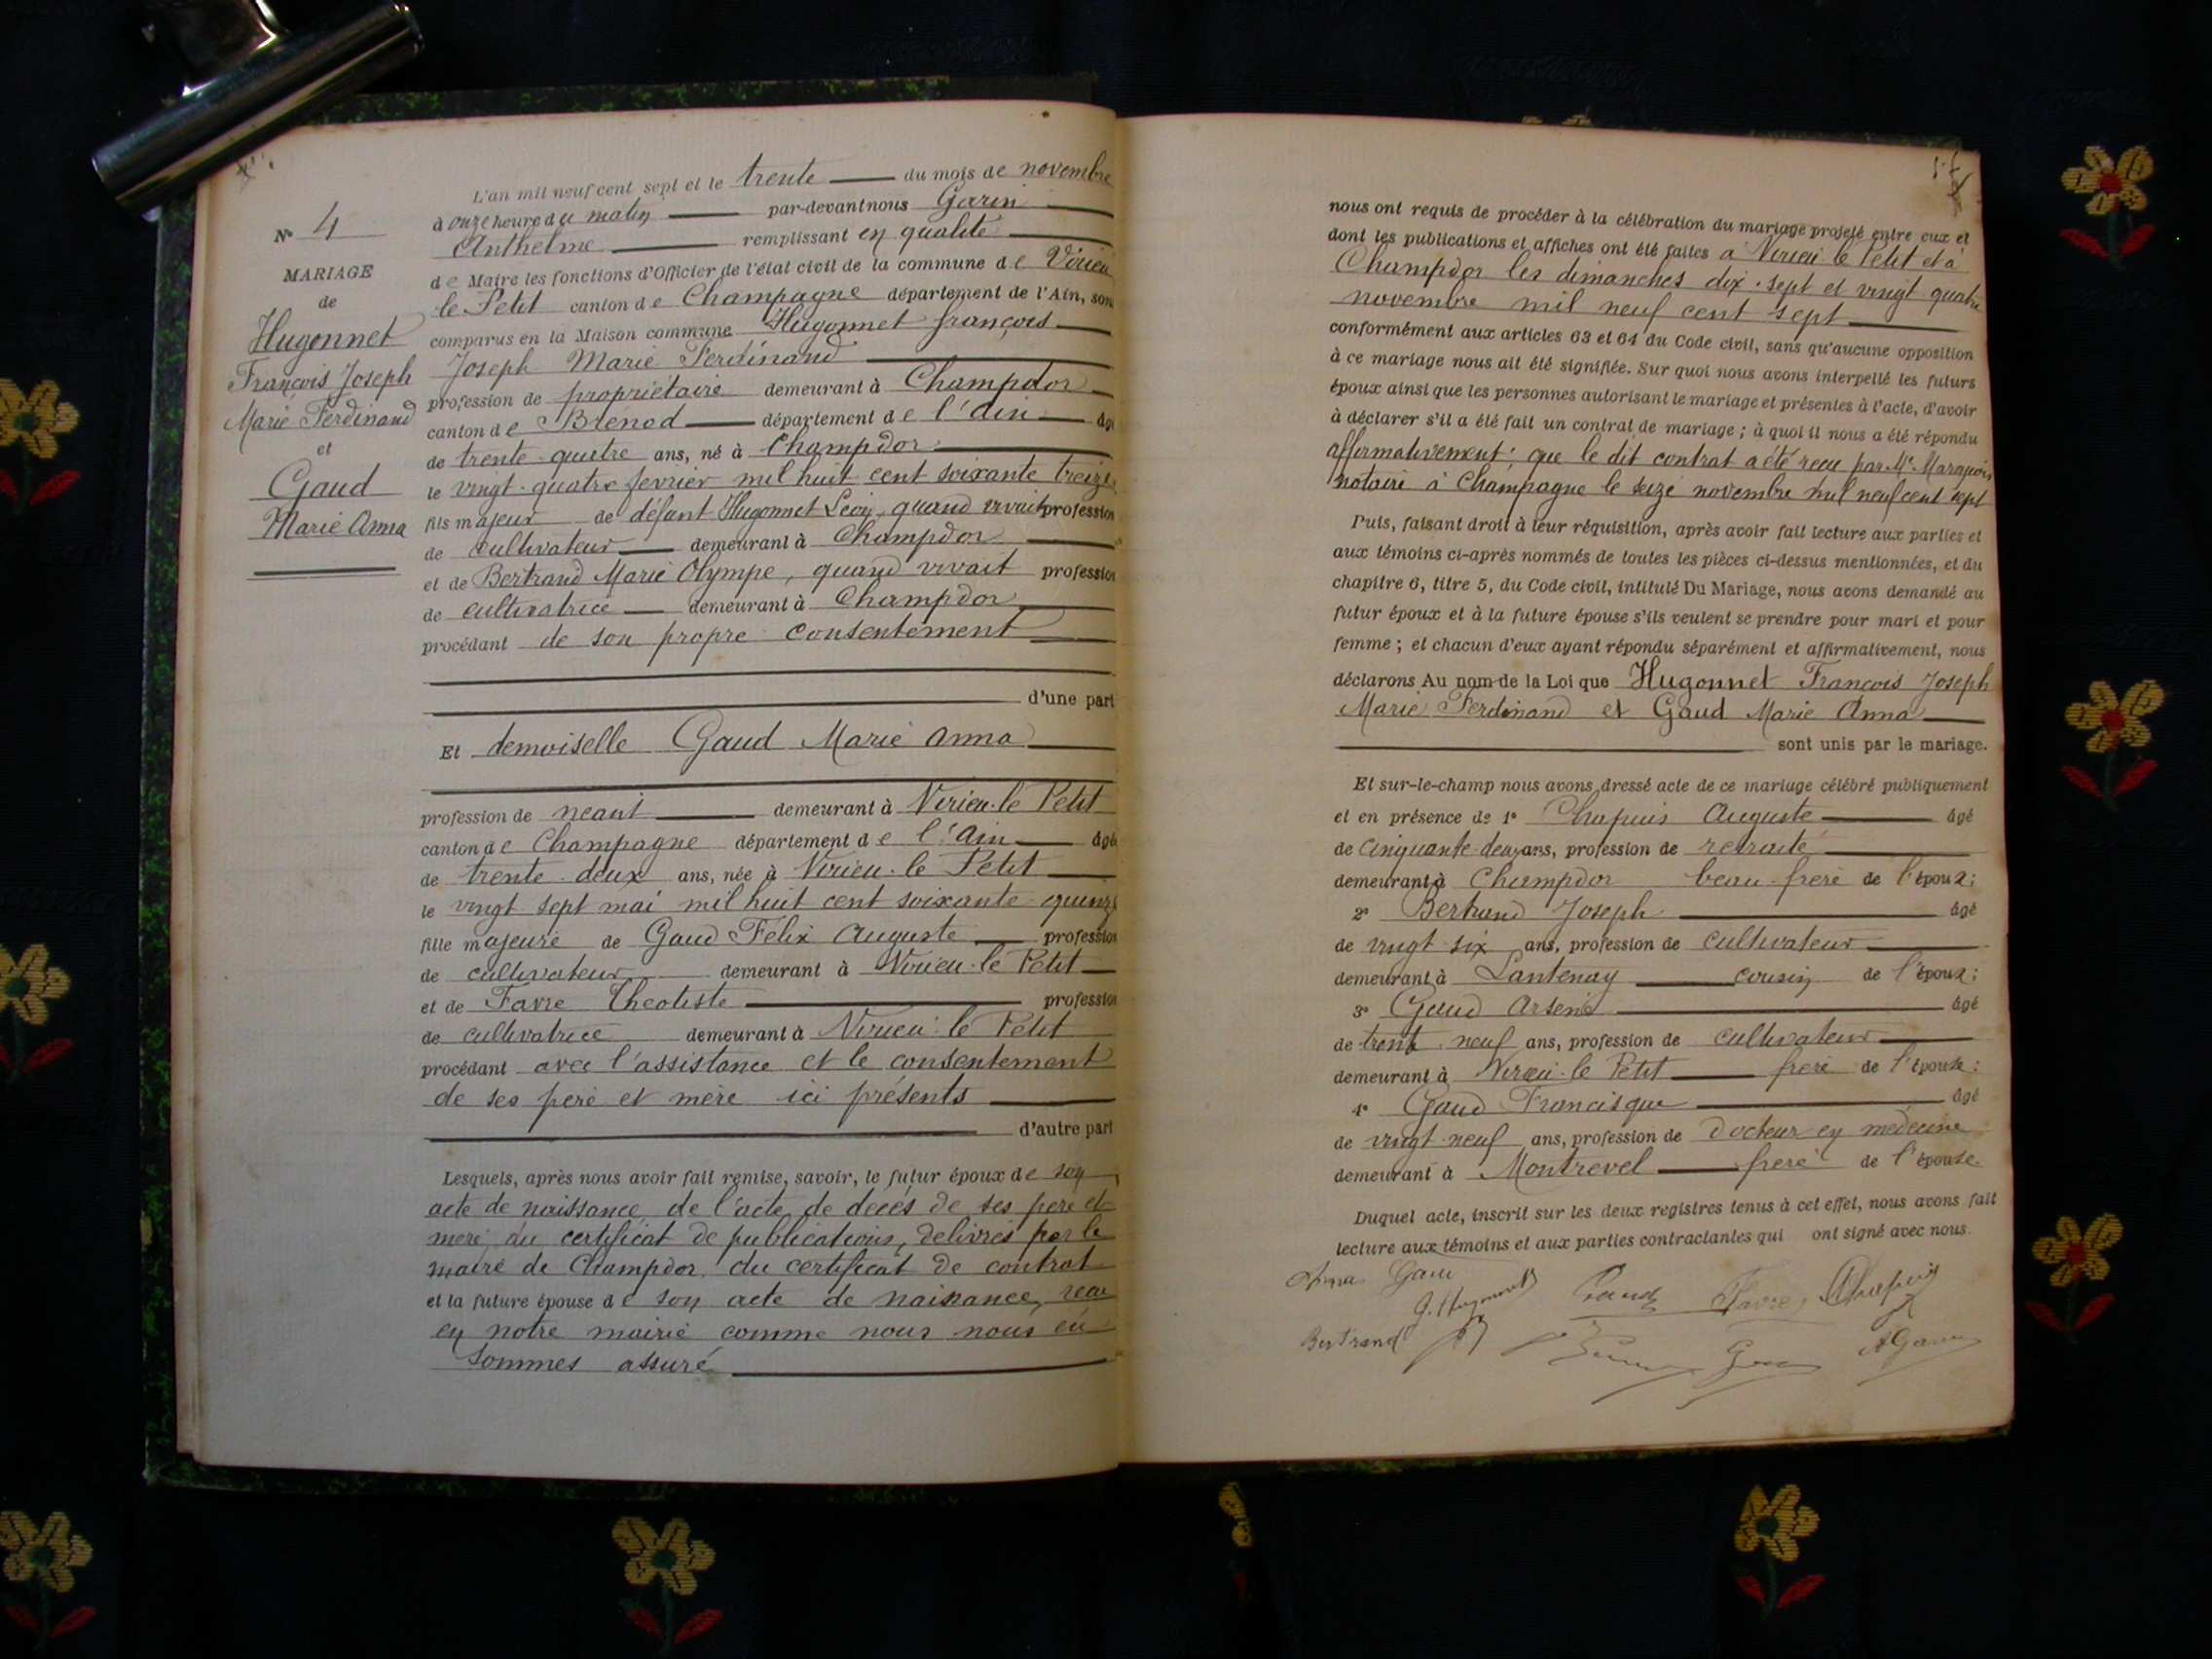 N° 4
MARIAGE
de
Hugonnet
François Joseph
Marie Ferdinand
et
Gaud
Marie Anna
L'an mil neuf cent sept et le trente du mois de novembre
à onze heure du matin par-devant nous Garin
Anthelme remplissant en qualité
de Maire les fonctions d'Officier de l'état civil de la commune de Virieu
le Petit canton de Champagne département de l'Ain, son
comparus en la Maison commune Hugonnet françois
Joseph Marie Ferdinand
profession de propriétaire demeurant à Champdor
canton de Brénod département de l'Ain âgé
de trente-quatre ans, né à Champdor
le vingt-quatre février mil huit cent soixante treize
fils majeur de défunt Hugonnet Léon, quand vivait profession
de cultivateur demeurant à Champdor
et de Bertrand Marie Olympe, quand vivait profession
de cultivatrice demeurant à Champdor
procédant de son propre consentement
d'une part
Et demoiselle Gaud Marie Anna
profession de néant demeurant à Virieu-le Petit
canton de Champagne département de l'Ain âgée
de trente-deux ans, née à Virieu-le Petit
le vingt sept mai mil huit cent soixante-quinze
fille majeure de Gaud Félix Auguste profession
de cultivateur demeurant à Virieu-le Petit
et de Favre Théotiste profession
de cultivatrice demeurant à Virieu-le Petit
procédant avec l'assistance et le consentement
de ses père et mère ici présents
d'autre part
Lesquels, après nous avoir fait remise, savoir, le futur époux de son
acte de naissance, de l'acte de décès de ses père et
mère du certificat de publications, délivrés par le
maire de Champdor, du certificat de contrat
et la future épouse de son acte de naissance, reçu
en notre mairie comme nous nous en
sommes assuré
nous ont requis de procéder à la célébration du mariage projeté entre eux et
dont les publications et affiches ont été faites à Virieu le Petit et à
Champdor les dimanches dix-sept et vingt quatre
novembre mil neuf cent sept
conformément aux articles 63 et 64 du Code civil, sans qu'aucune opposition
à ce mariage nous ait été signifiée. Sur quoi nous avons interpellé les futurs
époux ainsi que les personnes autorisant le mariage et présentes à l'acte, d'avoir
à déclarer s'il a été fait un contrat de mariage ; à quoi il nous a été répondu
affirmativement; que le dit contrat a été reçu par Me
notaire à Champagne le seize novembre mil neuf cent sept
Puis, faisant droit à leur réquisition, après avoir fait lecture aux parties et
aux témoins ci-après nommés de toutes les pièces ci-dessus mentionnées, et du
chapitre 6, titre 5, du Code civil, intitulé Du Mariage, nous avons demandé au
futur époux et à la future épouse s'ils veulent se prendre pour mari et pour
femme ; et chacun d'eux ayant répondu séparément et affirmativement, nous
déclarons Au nom de la Loi que Hugonnet François Joseph
Marie Ferdinand et Gaud Marie Anna
sont unis par le mariage.
Et sur-le-champ nous avons dressé acte de ce mariage célébré publiquement
et en présence de 1° Chapuis Auguste âgé
de cinquante-deux ans, profession de retraité
demeurant à Champdor beau-frère de l'époux;
2° Bertrand Joseph âgé
de vingt-six ans, profession de cultivateur
demeurant à Lantenay cousin de l'époux;
3° Gaud Arsène âgé
de trente-neuf ans, profession de cultivateur
demeurant à Virieu-le Petit frère de l'épouse;
4° Gaud Francisque âgé
de vingt-neuf ans, profession de docteur en médecine
demeurant à Montrevel frère de l'épouse.
Duquel acte, inscrit sur les deux registres tenus à cet effet, nous avons fait
lecture aux témoins et aux parties contractantes qui ont signé avec nous.
Anna Gaud
Hugonnet Gaud Favre Chapuis
Bertrand AGarin